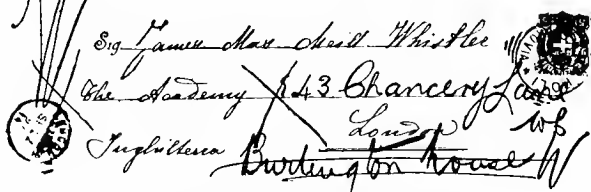 Sig James Mac Neill Whistler
The Academy 43 Chancery Lane
London WC
Inghilterra
Burlington House W